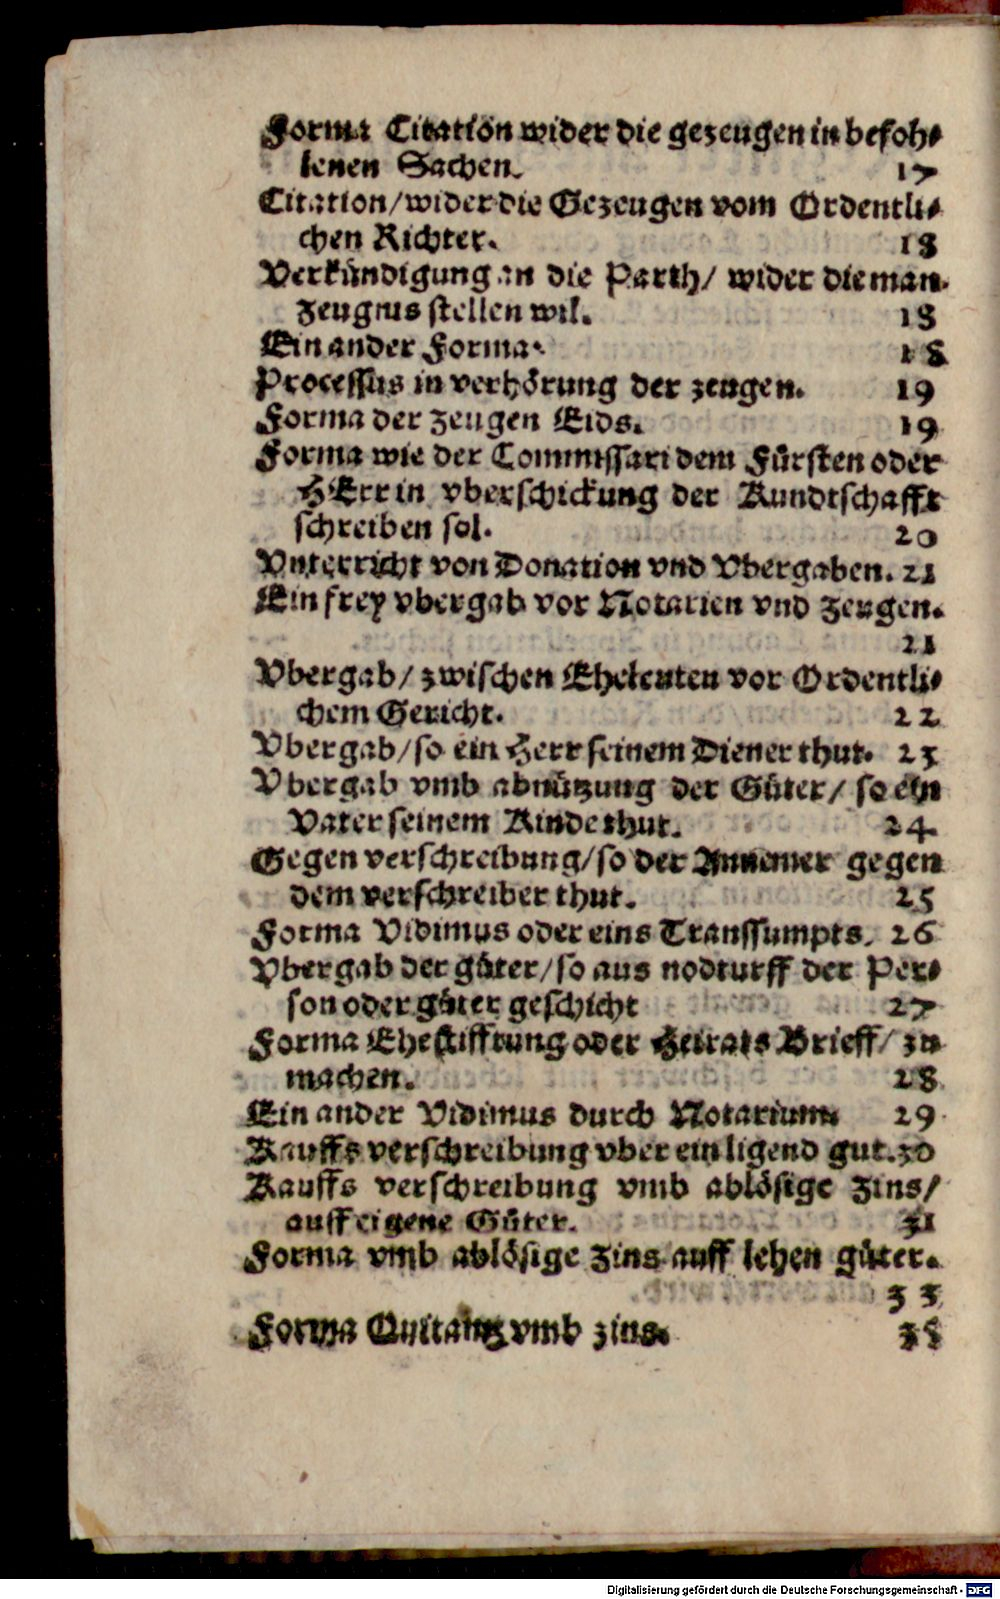 Forma Citation wider die gezeugen in befoh⸗
lenen Sachen. 17
Citation/wider die Gezeugen vom Ordentli⸗
chen Richter. 18
Verkündigung an die Parth/ wider die man
Zeugnus stellen wil. 18
Ein ander Forma. 18
Processus in verhörung der zeugen. 19
Forma der Zeugen Eids. 19
Forma wie der Commissari dem Fürsten oder
HErr in vberschickung der Kundtschafft
schreiben sol. 20
Vnterricht von Donation vnd Vbergaben. 21
Ein frey vbergab vor Notarien vnd Zeugen.
21
Vbergab/ zwischen Eheleuten vor Ordentli⸗
chem Gericht. 22
Vbergab/so ein Herr seinem Diener thut. 23
Vbergab vmb abnützung der Güter/ so ein
Vater seinem Kinde thut. 24
Gegen verschreibung/so der Annemer gegen
dem verschreiber thut. 25
Forma Vidimus oder eins Transsumpts. 26
Vbergab der güter/so aus nodturff der Per⸗
son oder güter geschicht 27
Forma Ehestifftung oder Heirats Brieff/ zu
machen. 28
Ein ander Vidimus durch Notarium. 29
Kauffs verschreibung vber ein ligend gut. 30
Kauffs verschreibung vmb ablösige Zins/
auff eigene Güter. 31
Forma vmb ablösige Zins auff lehen güter.
33
Forma Quitantz vmb zins. 35
Digitalisierung gefördert durch die Deutsche Forschungsgemeinschaft - DFG